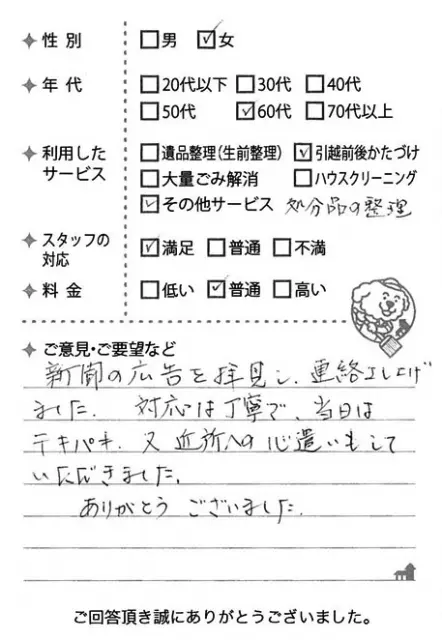 ✦ 性別 □男 ☑女
✦ 年代 □20代以下 □30代 □40代
□50代 ☑60代 □70代以上
✦ 利用したサービス □遺品整理(生前整理) ☑引越前後かたづけ
□大量ごみ解消 □ハウスクリーニング
☑その他サービス 処分品の整理
✦ スタッフの対応 ☑満足 □普通 □不満
✦ 料金 □低い ☑普通 □高い
✦ ご意見・ご要望など
新聞の広告を拝見し、連絡上しげ
ました. 対応は丁寧で、当日は
テキパキ. 又近所への心遣いもして
いただきました.
ありがとう ございました.
ご回答頂き誠にありがとうございました。